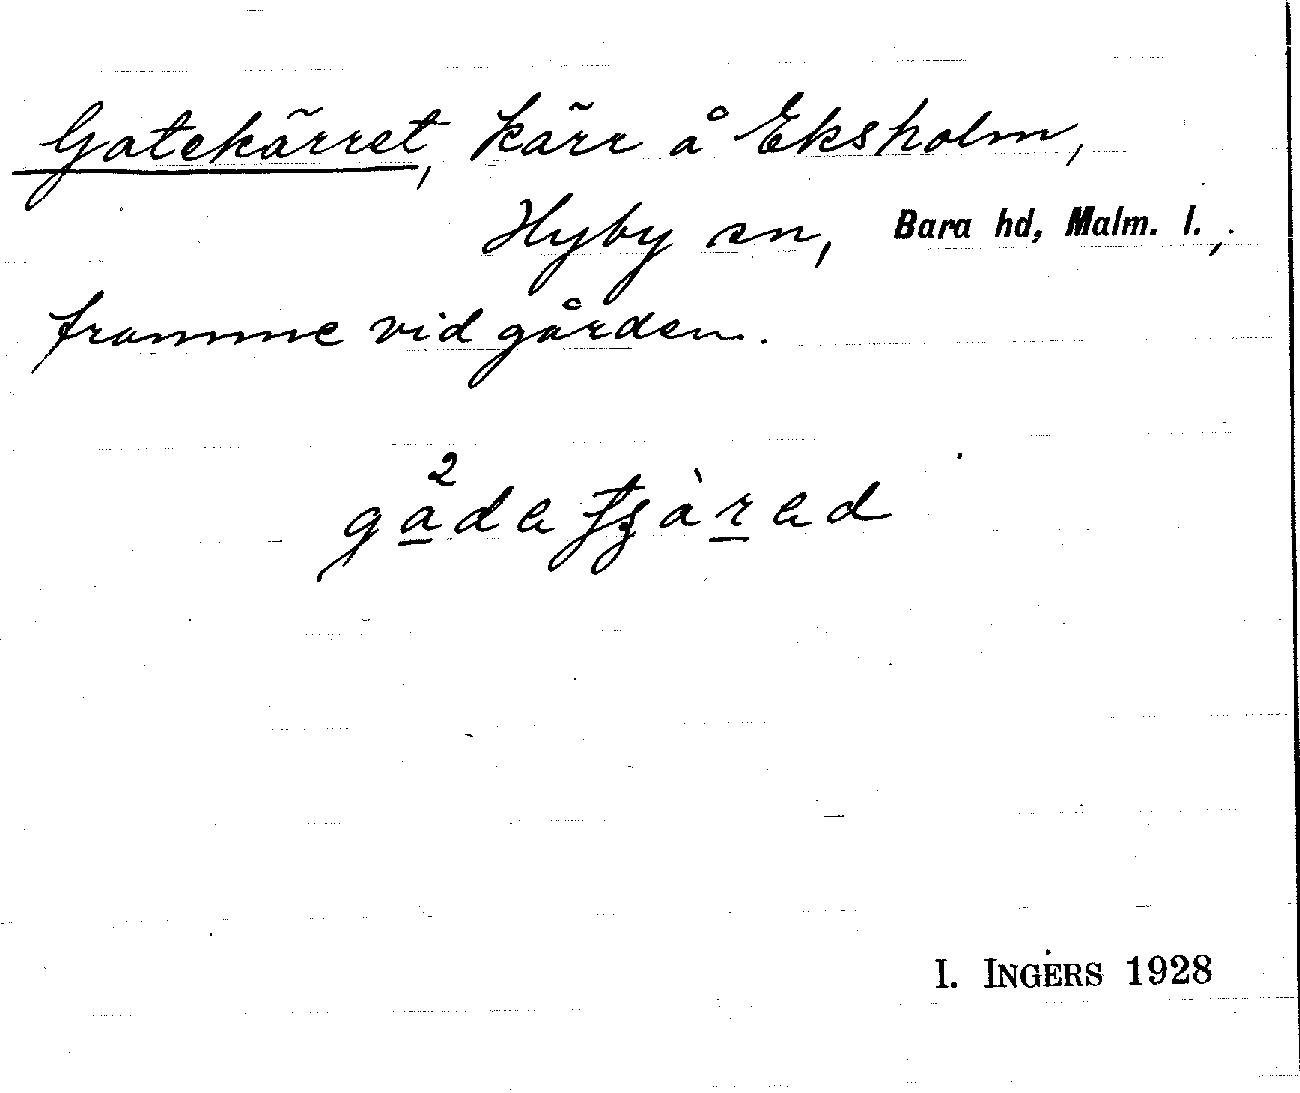 Gatekärret, kärr å Eksholm,
Hyby sn, Bara hd, Malm. l.,
framme vid gården.
I. INGERS 1928